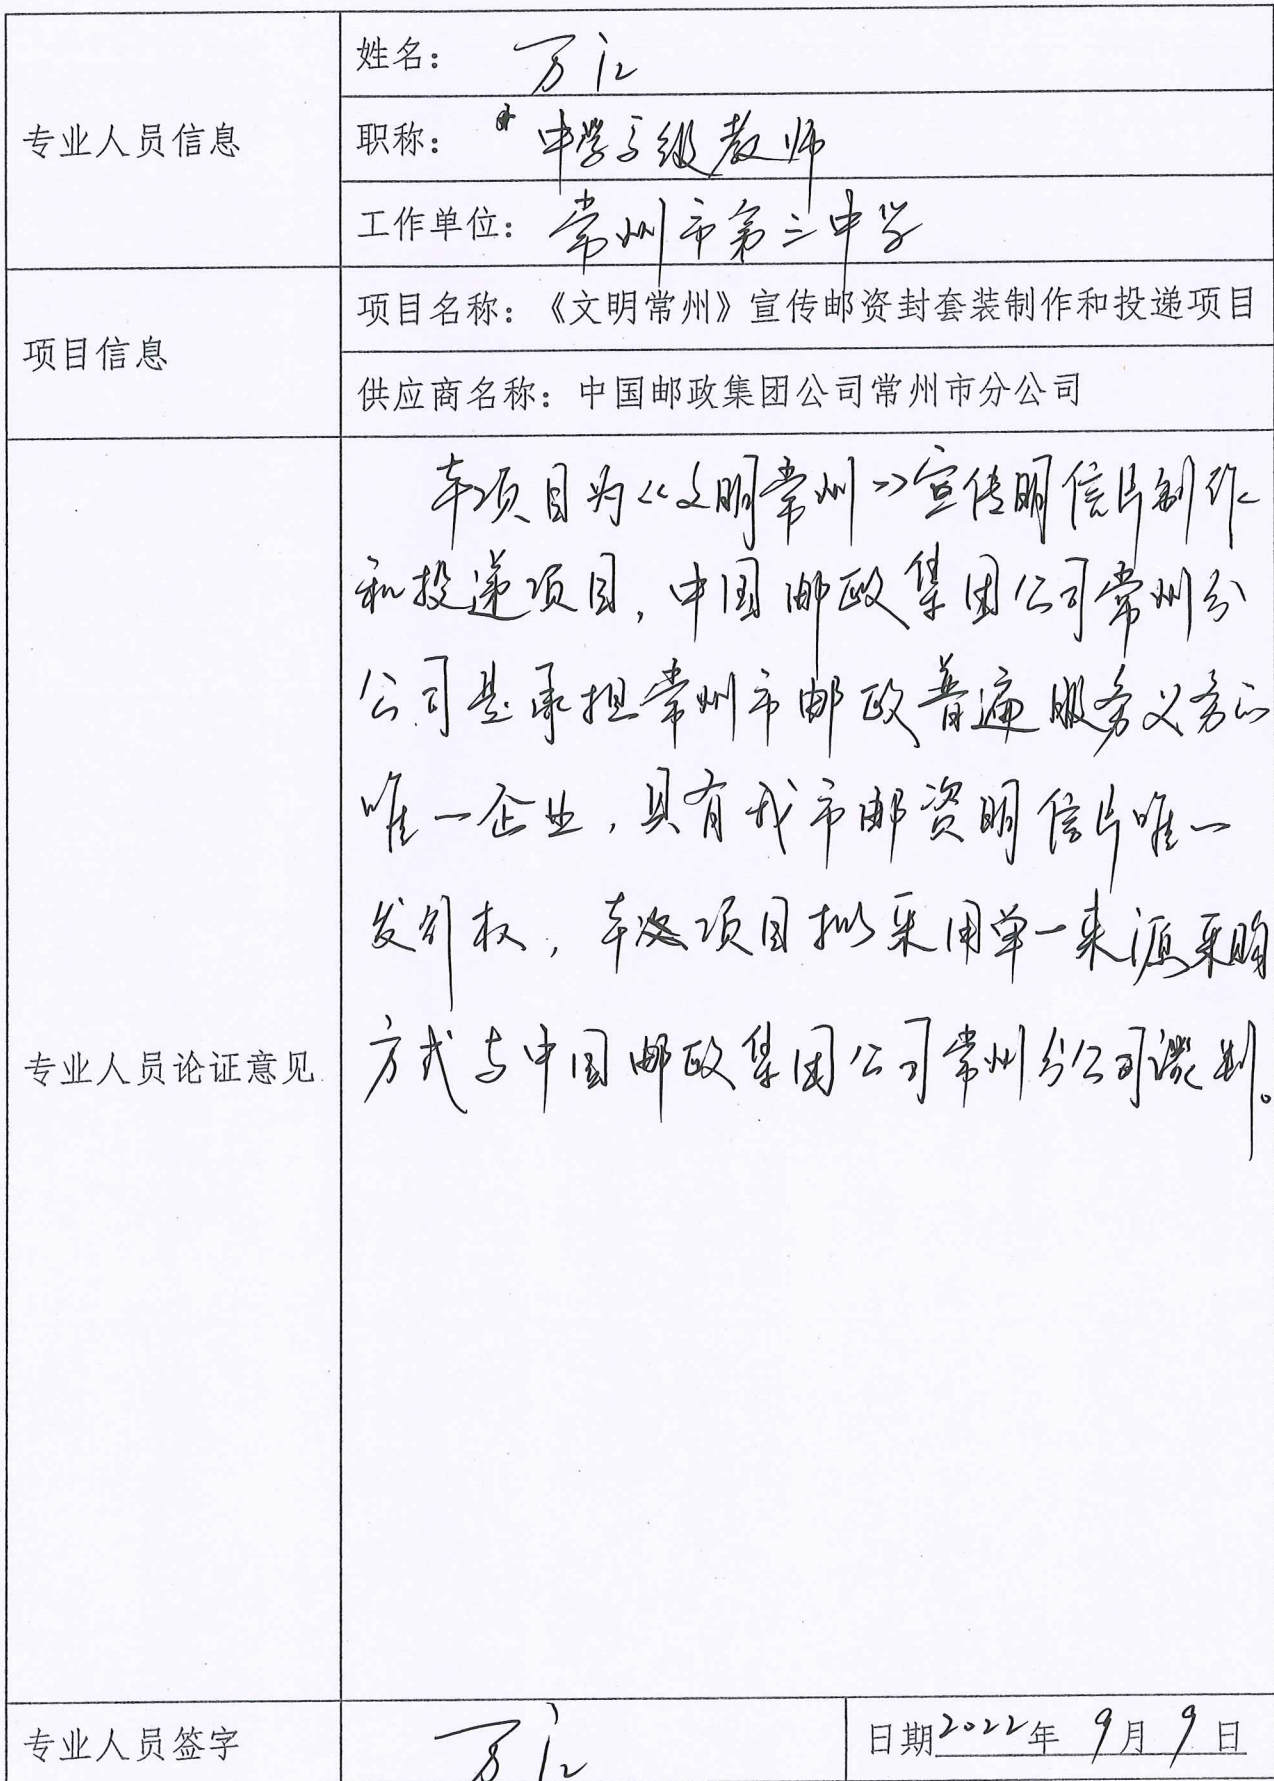 专业人员信息
姓名：万江
职称：中学高级教师
工作单位：常州市第三中学
项目信息
项目名称：《文明常州》宣传邮资封套装制作和投递项目
供应商名称：中国邮政集团公司常州市分公司
专业人员论证意见
本项目为《文明常州》宣传明信片制作
和投递项目，中国邮政集团公司常州分
公司是承担常州市邮政普遍服务义务的
唯一企业，具有我市邮资明信片唯一
发行权，本次项目拟采用单一来源采购
方式与中国邮政集团公司常州分公司谈判。
专业人员签字
万江
日期2022年 9月 9日